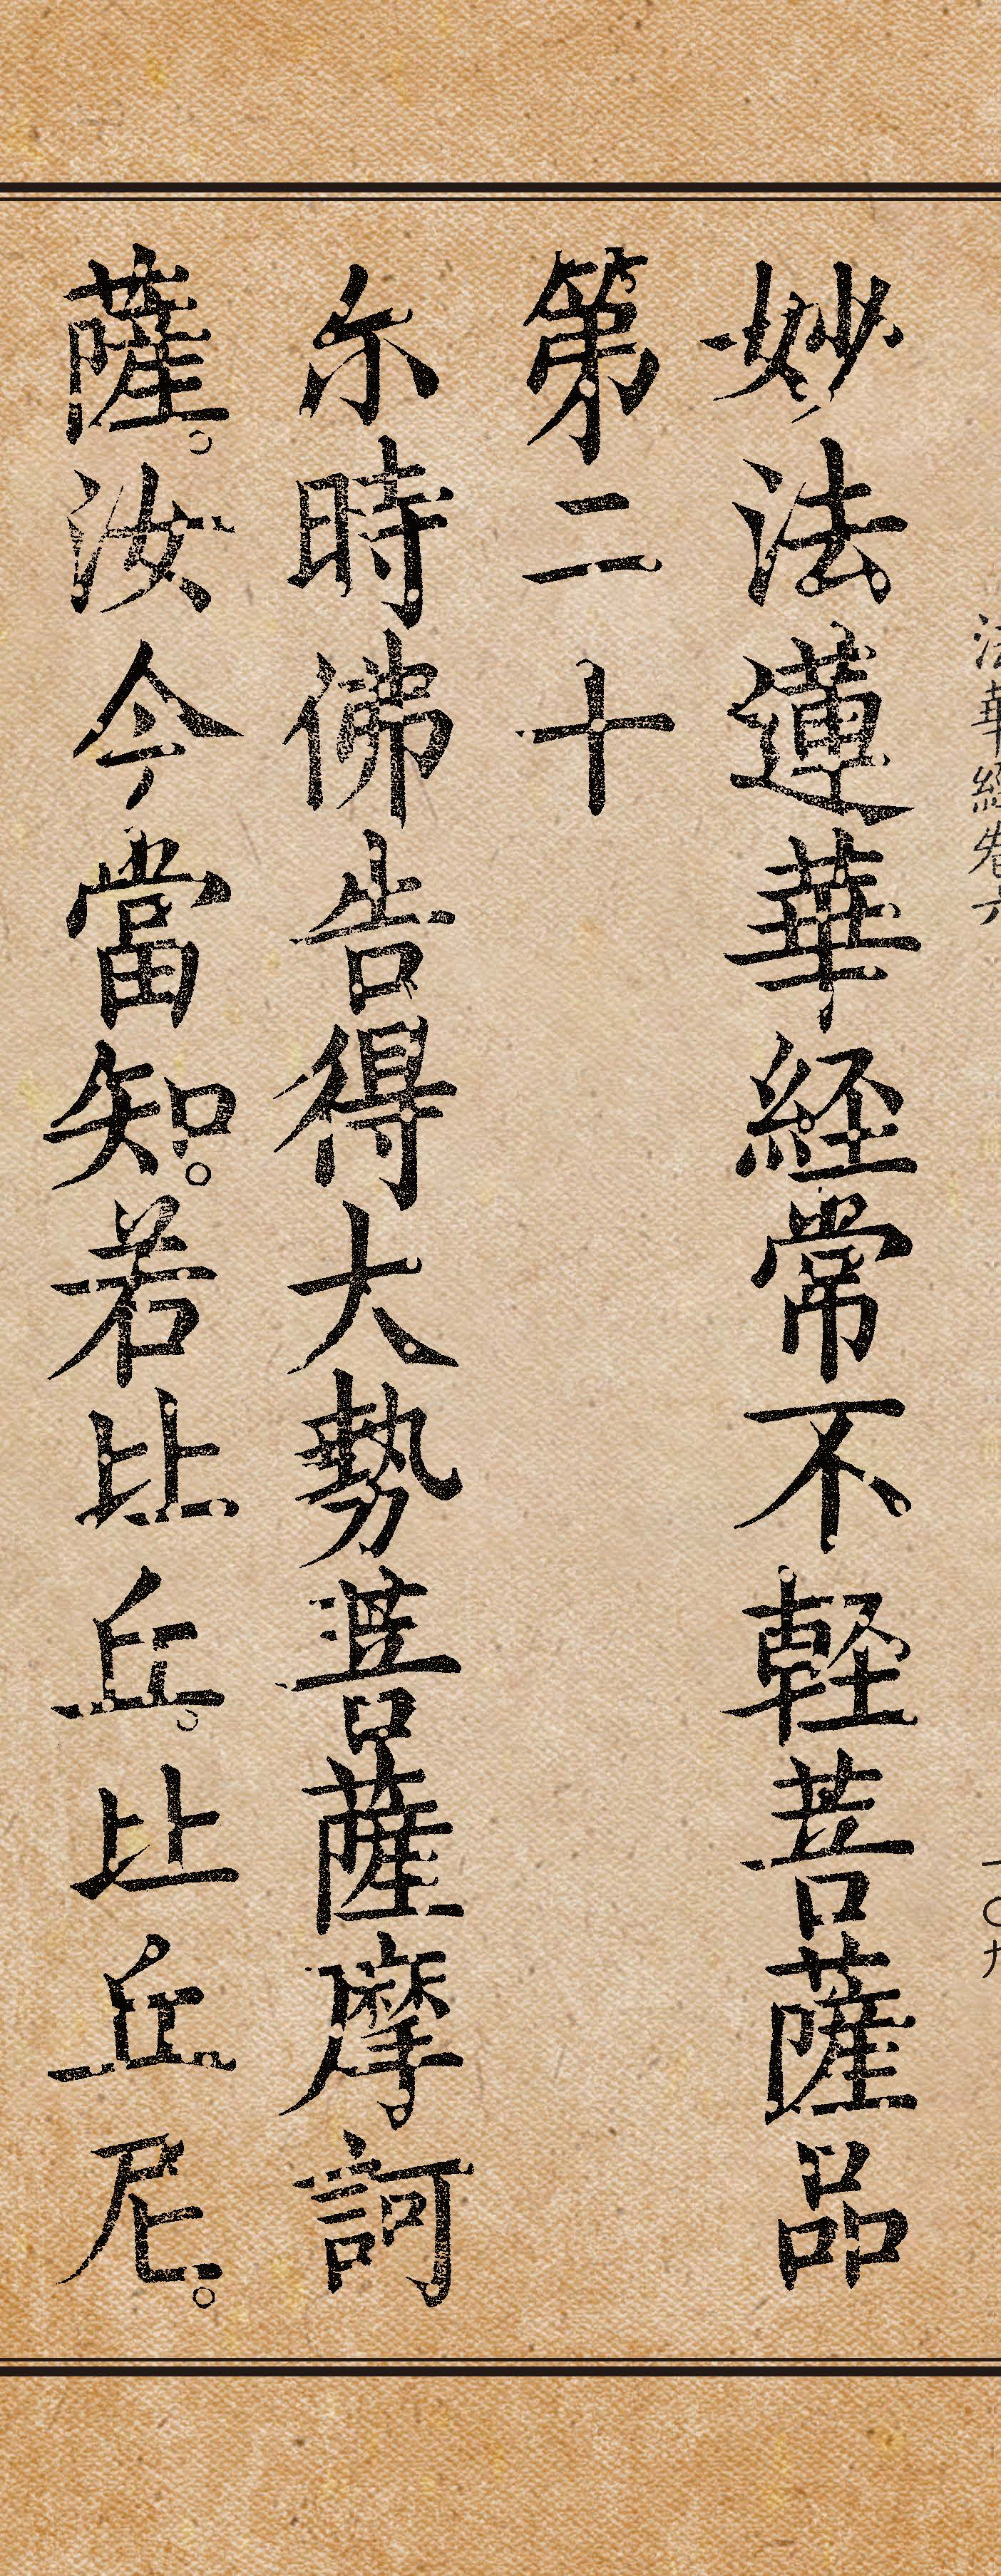 法華經卷六
一〇九
妙法蓮華経常不軽菩薩品
第二十
尓時佛告得大勢菩薩摩訶
薩。汝今當知。若比丘。比丘尼。